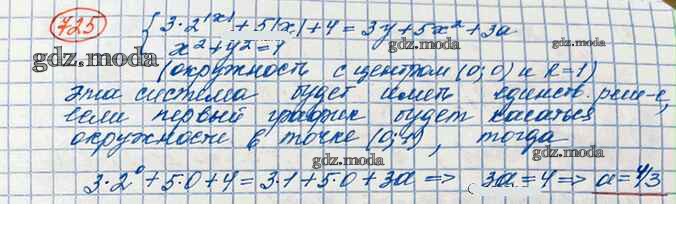 725 { 3·2^|x| + 5|x| + 4 = 3y + 5x² + 3a
x² + y² = 1
gdz.moda
gdz.moda
gdz.moda
(окружность с центром (0; 0) и R=1)
gdz.moda
Эта система будет иметь единств. реше-е,
если первый график будет касаться
gdz.moda
окружности в точке (0,1), тогда
gdz.moda
3·2⁰ + 5·0 + 4 = 3·1 + 5·0 + 3a => 3a = 4 => a = 4/3
gdz.moda